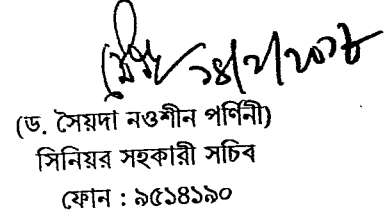 ১৪/২/২০১৮
(ড. সৈয়দা নওশীন পর্ণিনী)
সিনিয়র সহকারী সচিব
ফোন : ৯৫১৪১৯০